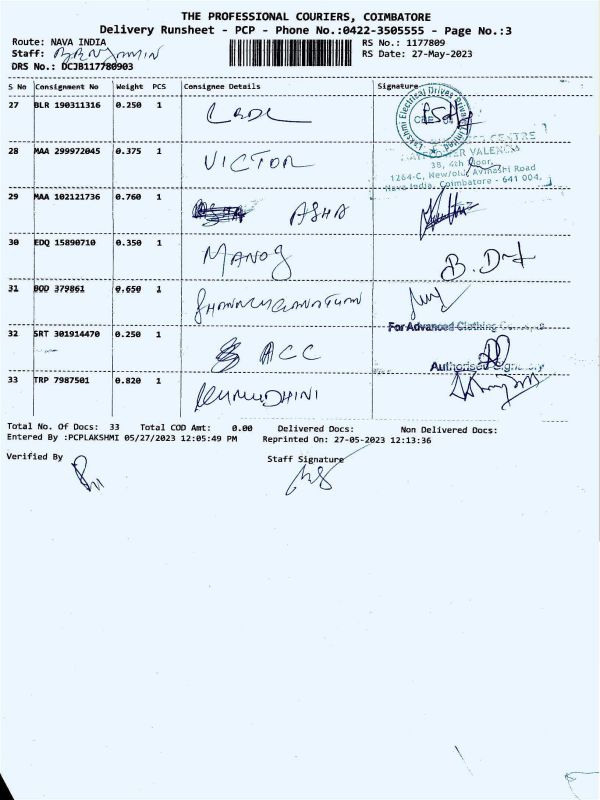 THE PROFESSIONAL COURIERS, COIMBATORE
Delivery Runsheet - PCP - Phone No.:0422-3505555 - Page No.:3
Route: NAVA INDIA RS No.: 1177809
Staff: RS Date: 27-May-2023
DRS No.: DCJB117780903
S No Consignment No Weight PCS Consignee Details Signature
27 BLR 190311316 0.250 1
Lakshmi Electrical Drives Private Limited
28 MAA 299972045 0.375 1 VICTOR
CENTRE
VALENCIA
38, 4th Floor,
1264-C, New/old, Avinashi Road
Nava India, Coimbatore - 641 004.
29 MAA 102121736 0.760 1 ASHA
30 EDQ 15890710 0.350 1 MANOJ
31 BOD 379861 0.650 1
For Advanced Clothing
32 SRT 301914470 0.250 1 ACC
Authorised Signatory
33 TRP 7987501 0.820 1 KUMUDHINI
Total No. Of Docs: 33 Total COD Amt: 0.00 Delivered Docs: Non Delivered Docs:
Entered By :PCPLAKSHMI 05/27/2023 12:05:49 PM Reprinted On: 27-05-2023 12:13:36
Verified By Staff Signature